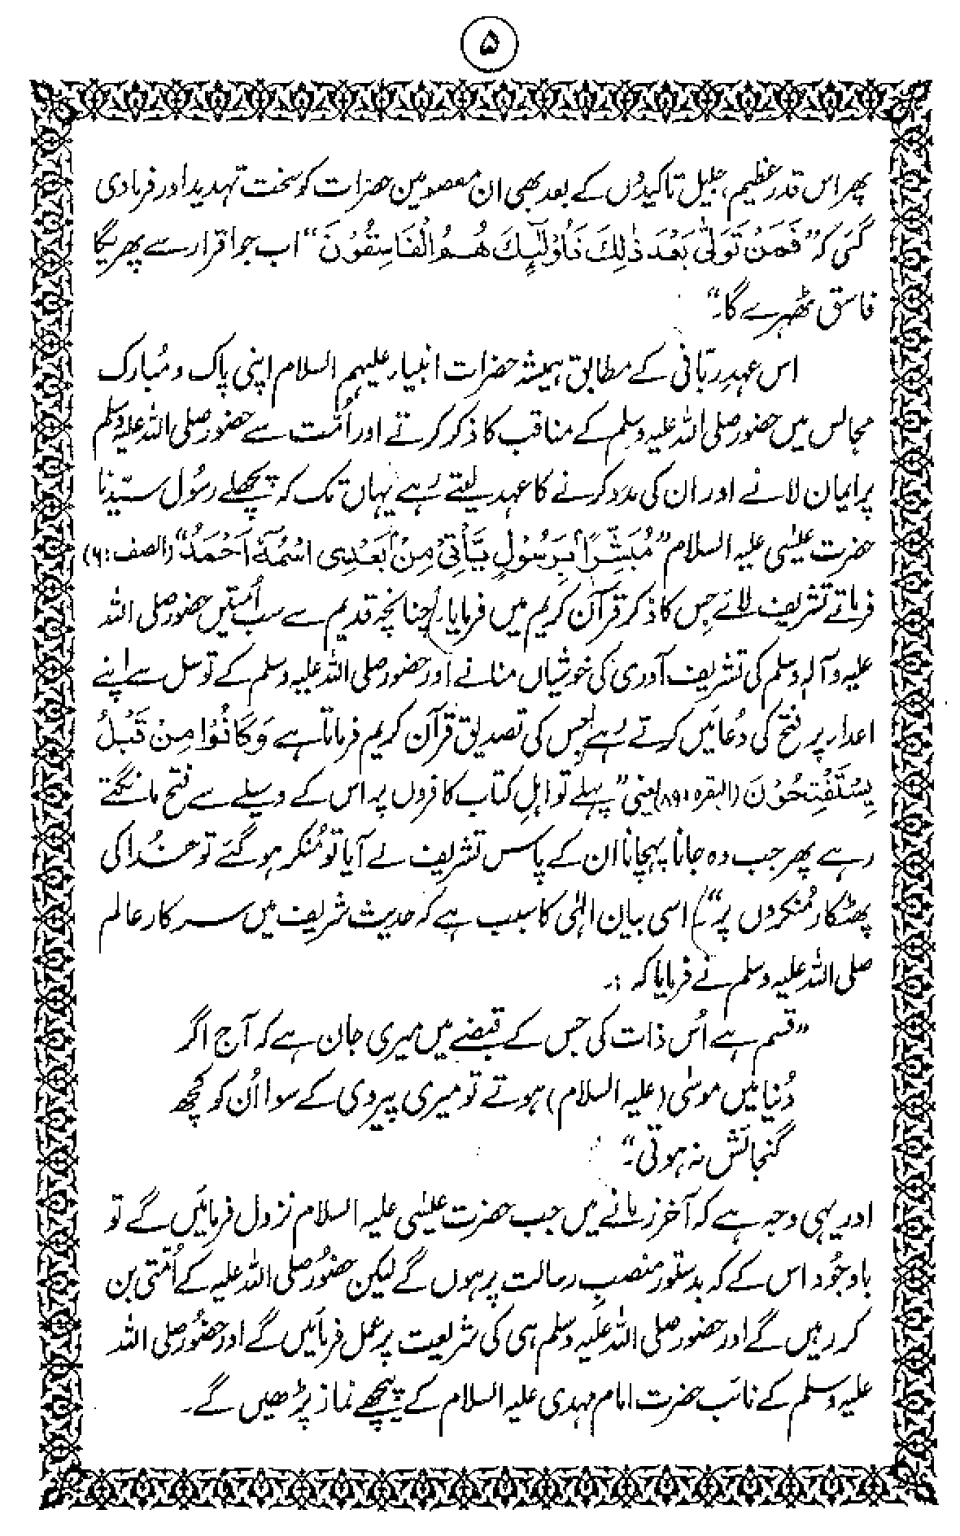 ۵
پھر اس قدر عظیم، جلیل تاکیدوں کے بعد بھی ان معصومین حضرات کو سخت تہدید اور فرما دی
گئی کہ "فَمَنْ تَوَلّٰى بَعْدَ ذٰلِكَ فَاُولٰٓئِكَ هُمُ الْفَاسِقُوْنَ" اب جو اقرار سے پھریگا
فاسق ٹھہرے گا۔"
اس عہدِ ربّانی کے مطابق ہمیشہ حضرات انبیاء علیہم السلام اپنی پاک و مُبارک
مجالس میں حضور صلی اللہ علیہ وسلم کے مناقب کا ذکر کرتے اور اُمّت سے حضور صلی اللہ علیہ وسلم
پر ایمان لانے اور ان کی مدد کرنے کا عہد لیتے رہے یہاں تک کہ پچھلے رسُول سیّدنا
حضرت عیسٰی علیہ السلام "مُبَشِّرًا بِرَسُوْلٍ يَّأْتِيْ مِنْ بَعْدِى اسْمُهٗٓ اَحْمَدُ" (الصف:۶)
فرماتے تشریف لائے جس کا ذکر قرآن کریم میں فرمایا۔ چنانچہ قدیم سے سب اُمتیں حضور صلی اللہ
علیہ و آلہ وسلم کی تشریف آوری کی خوشیاں منانے اور حضور صلی اللہ علیہ وسلم کے توسل سے اپنے
اعداء پر فتح کی دُعائیں کرتے رہے جس کی تصدیق قرآن کریم فرماتا ہے وَكَانُوْا مِنْ قَبْلُ
يَسْتَفْتِحُوْنَ (البقرہ ۸۹) یعنی "پہلے تو اہلِ کتاب کافروں پر اس کے وسیلے سے فتح مانگتے
رہے پھر جب وہ جانا پہچانا ان کے پاس تشریف لے آیا تو مُنکر ہو گئے تو خُدا کی
پھٹکار مُنکروں پر"۔ اسی بیان الٰہی کا سبب ہے کہ حدیث شریف میں سرکار عالم
صلی اللہ علیہ وسلم نے فرمایا کہ :۔
"قسم ہے اُس ذات کی جس کے قبضے میں میری جان ہے کہ آج اگر
دُنیا میں موسٰی (علیہ السلام) ہوتے تو میری پیروی کے سوا اُن کو کچھ
گنجائش نہ ہوتی۔"
اور یہی وجہ ہے کہ آخر زمانے میں جب حضرت عیسٰی علیہ السلام نزول فرمائیں گے تو
باوجُود اس کے کہ بدستور منصبِ رسالت پر ہوں گے لیکن حضُور صلی اللہ علیہ کے اُمّتی بن
کر رہیں گے اور حضور صلی اللہ علیہ وسلم ہی کی شریعت پر عمل فرمائیں گے اور حضُور صلی اللہ
علیہ وسلم کے نائب حضرت امام مہدی علیہ السلام کے پیچھے نماز پڑھیں گے۔